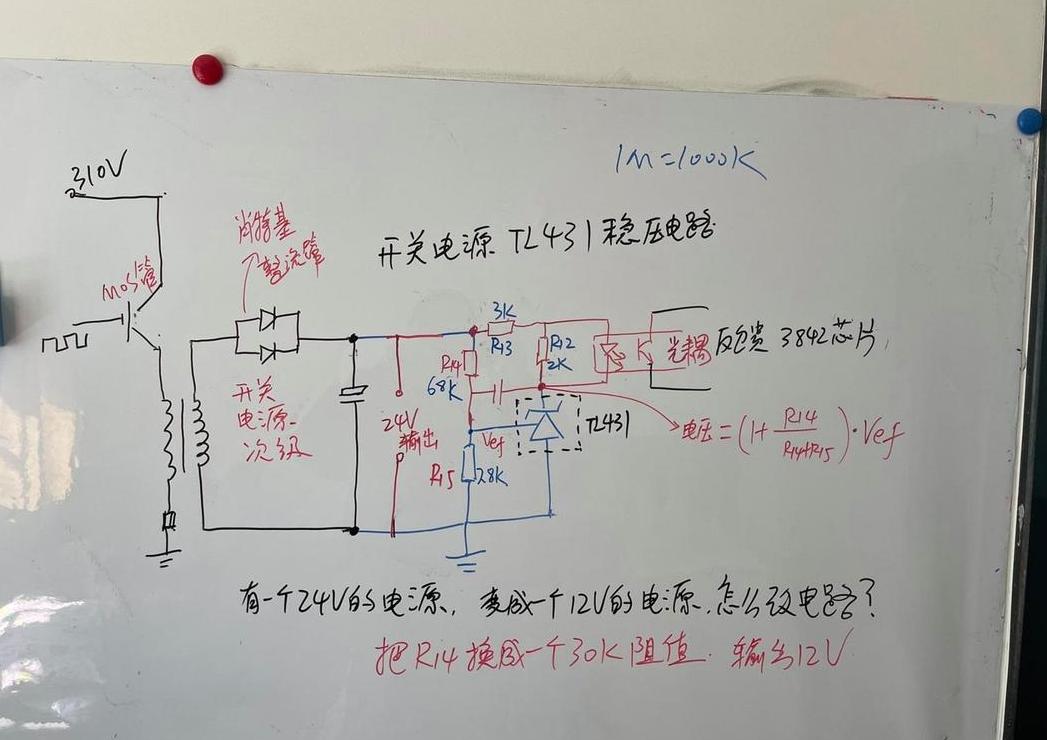 1M=1000K
310V
开关电源 TL431稳压电路
肖特基
整流管
MOS管
3K
R13
R12
2K
R14
68K
光耦
反馈 3842芯片
开关
电源
次级
24V
输出
Vef
TL431
R15
28K
电压=(1+R14/R14+R15)·Vef
有一个24V的电源,变成一个12V的电源,怎么改电路?
把R14换成一个30K阻值.输出12V